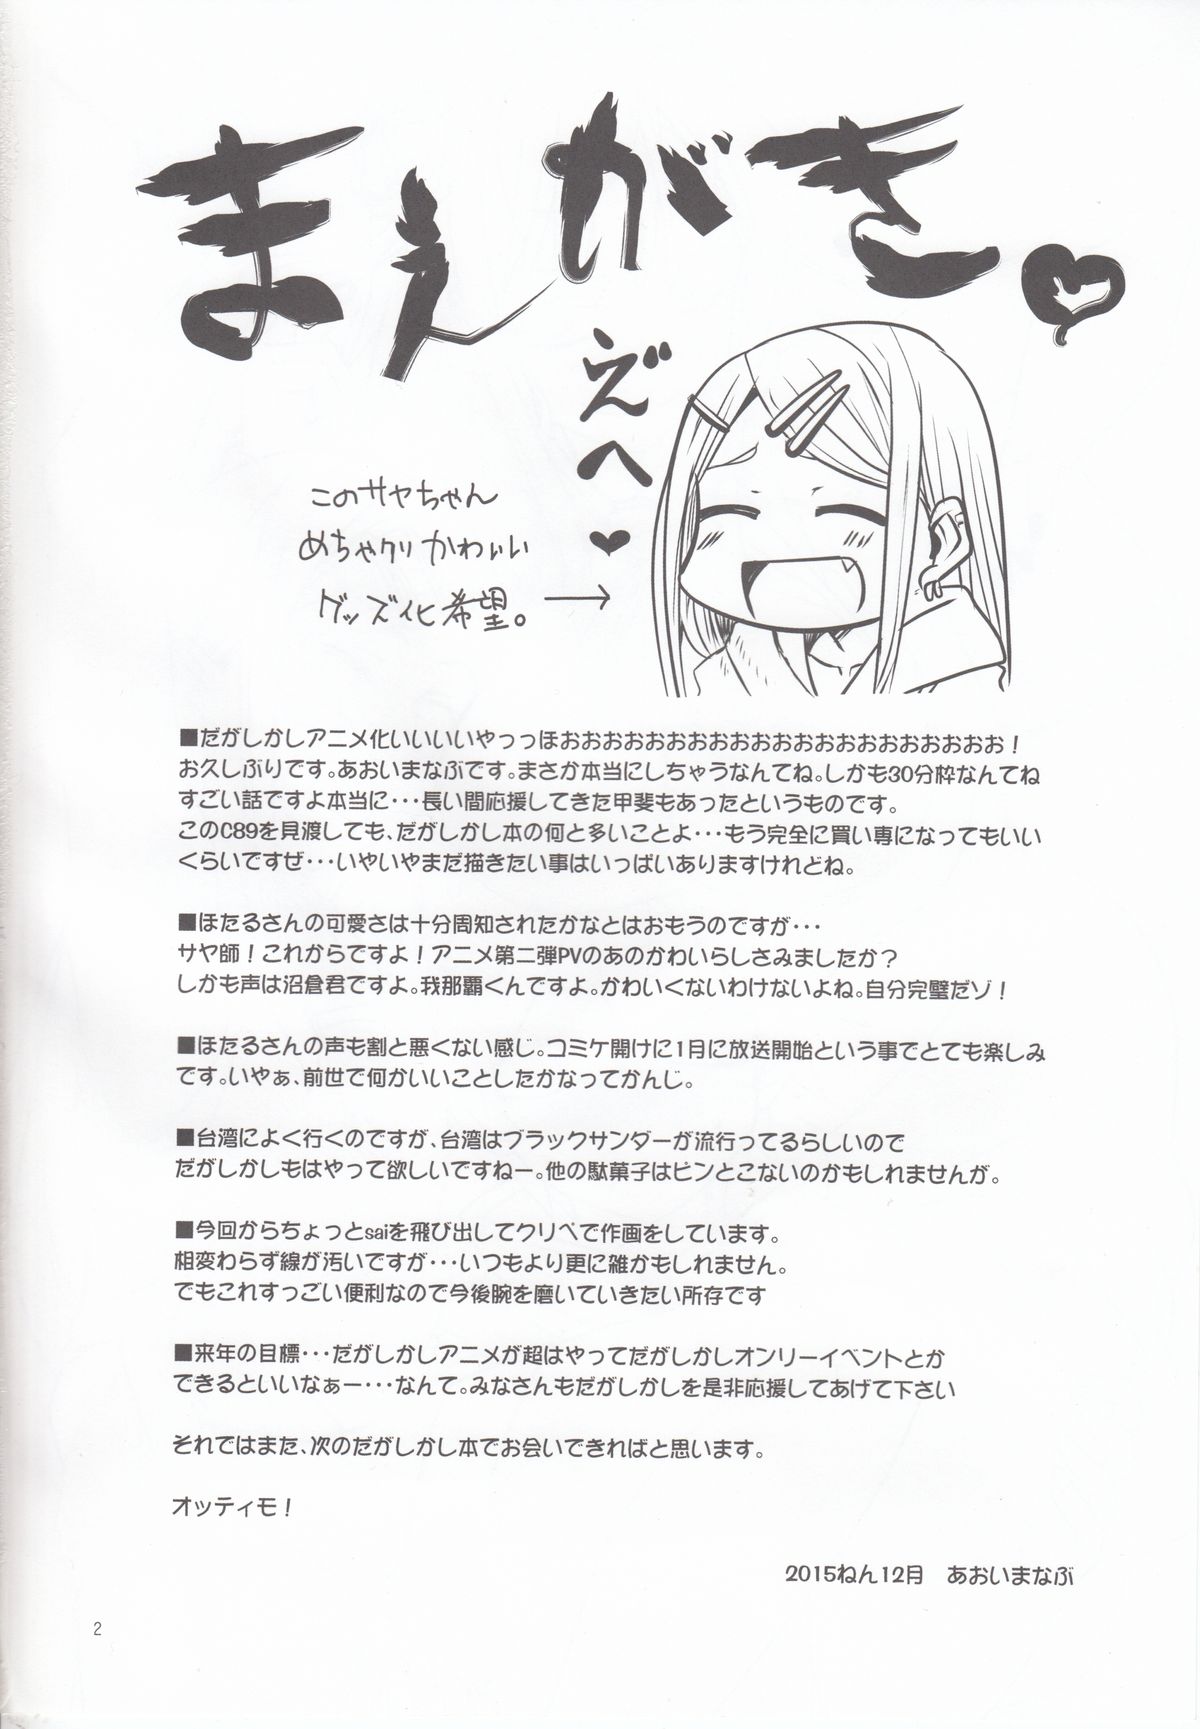 まえがき♥
ゞえへ♥
このサヤちゃん
めちゃクリかわいい
グッズ化希望。→
■だがしかしアニメ化いいいいやっっほおおおおおおおおおおおおおおおおおおおおお！
お久しぶりです。あおいまなぶです。まさか本当にしちゃうなんてね。しかも30分枠なんてね
すごい話ですよ本当に・・・長い間応援してきた甲斐もあったというものです。
このC89を見渡しても、だがしかし本の何と多いことよ・・・もう完全に買い専になってもいい
くらいですぜ・・・いやいやまだ描きたい事はいっぱいありますけれどね。
■ほたるさんの可愛さは十分周知されたかなとはおもうのですが・・・
サヤ師！これからですよ！アニメ第二弾PVのあのかわいらしさみましたか？
しかも声は沼倉君ですよ。我那覇くんですよ。かわいくないわけないよね。自分完璧だゾ！
■ほたるさんの声も割と悪くない感じ。コミケ開けに1月に放送開始という事でとても楽しみ
です。いやぁ、前世で何かいいことしたかなってかんじ。
■台湾によく行くのですが、台湾はブラックサンダーが流行ってるらしいので
だがしかしもはやって欲しいですねー。他の駄菓子はピンとこないのかもしれませんが。
■今回からちょっとsaiを飛び出してクリペで作画をしています。
相変わらず線が汚いですが・・・いつもより更に雑かもしれません。
でもこれすっごい便利なので今後腕を磨いていきたい所存です
■来年の目標・・・だがしかしアニメが超はやってだがしかしオンリーイベントとか
できるといいなぁー・・・なんて。みなさんもだがしかしを是非応援してあげて下さい
それではまた、次のだがしかし本でお会いできればと思います。
オッティモ！
2015ねん12月　あおいまなぶ
2